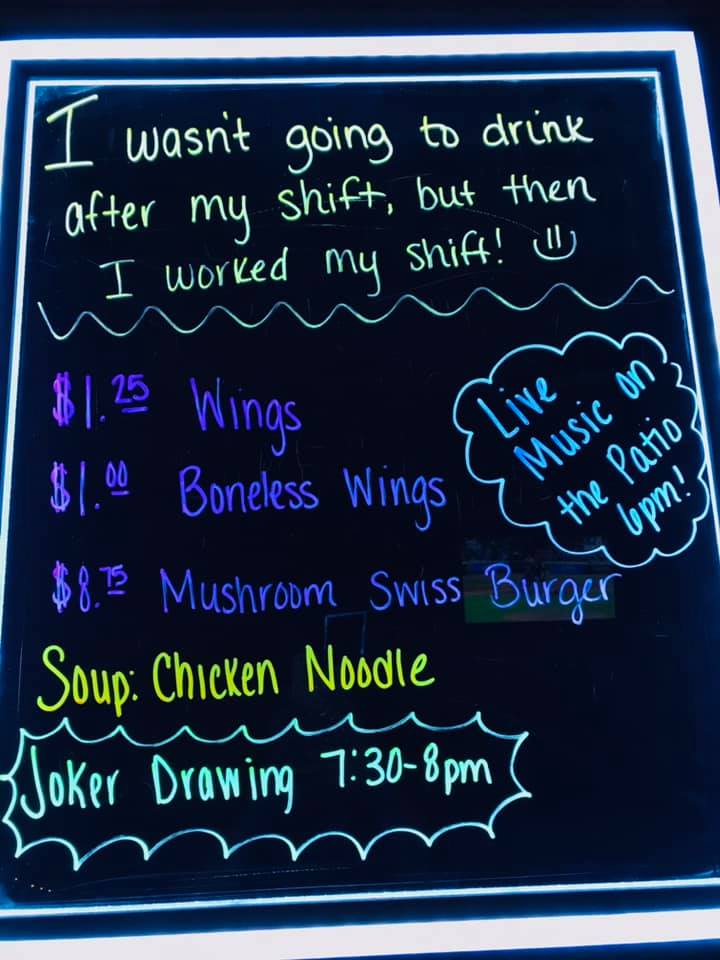 I wasn't going to drink
after my shift, but then
I worked my shift! :)
$1.25 Wings
$1.00 Boneless Wings
Live
Music on
the Patio
6pm!
$8.75 Mushroom Swiss Burger
Soup: Chicken Noodle
Joker Drawing 7:30-8pm